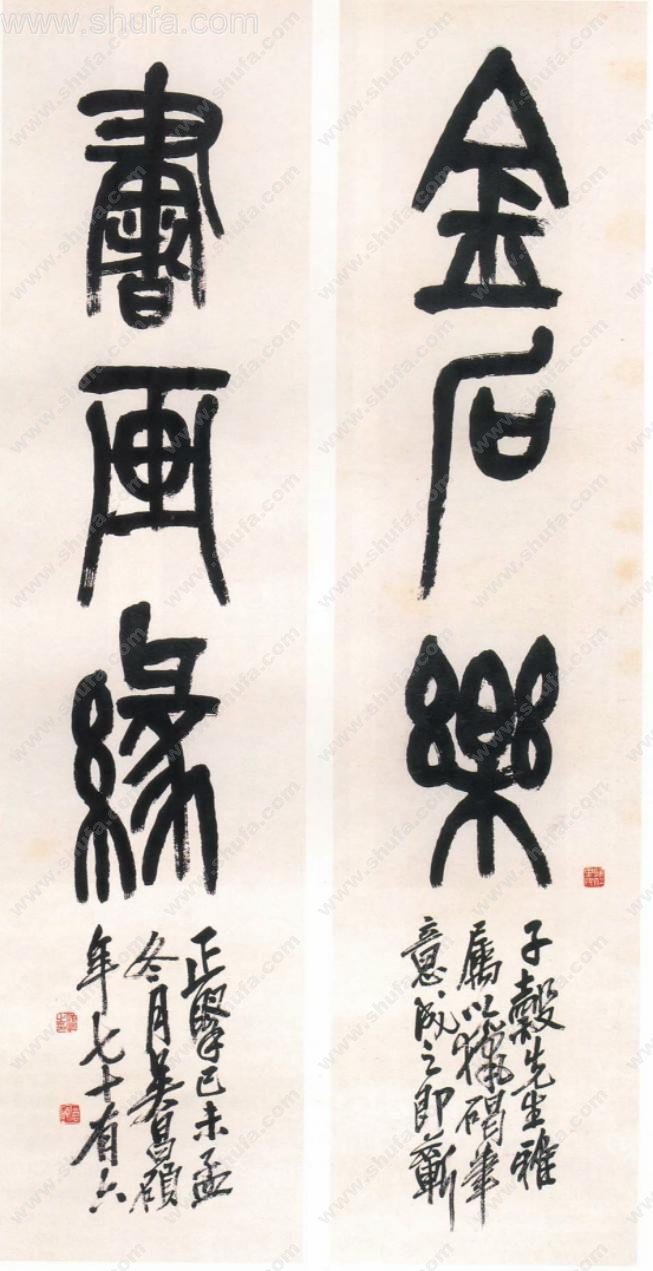 金石樂
子穀先生雅
屬以獵碣筆
意成之即蘄
書画緣
正擘己未孟
冬月吳昌碩
年七十有六
www.shufa.com